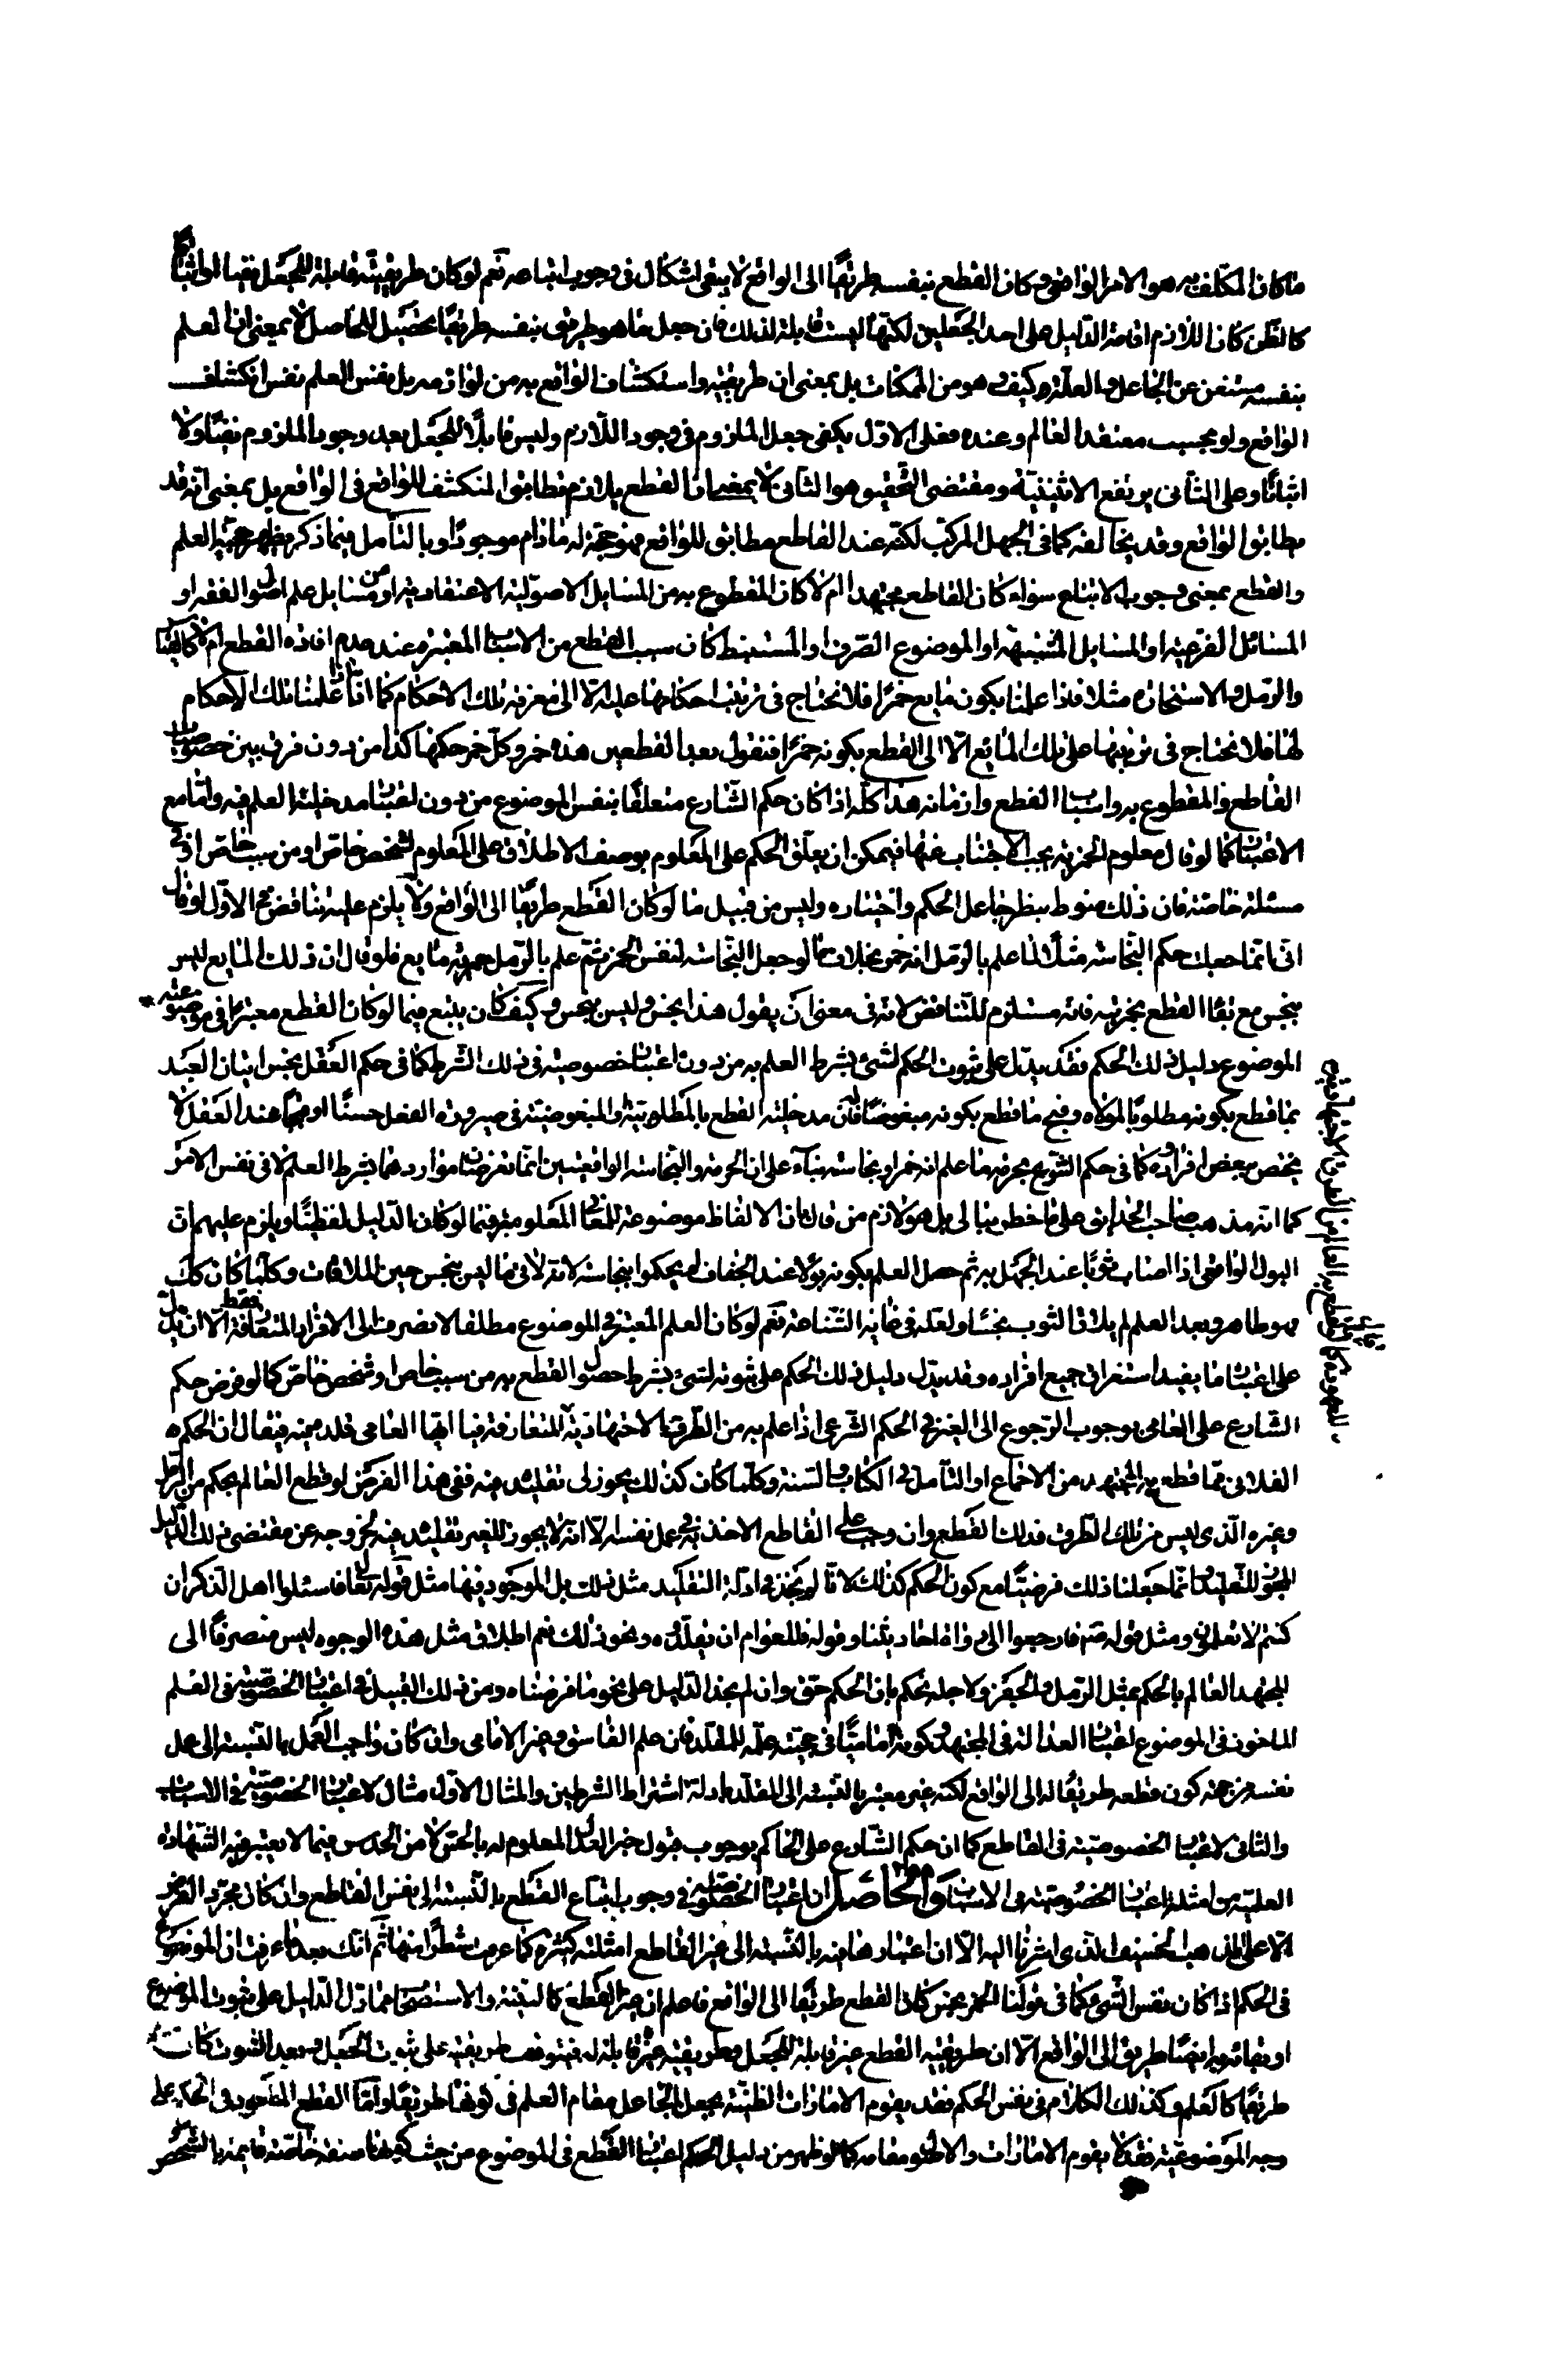 ما كان المكلف به هو الامر الواقعى وكان القطع بنفسه طريقًا الى الواقع لا يبقى اشكال فى وجوب اتباعه نعم لو كان طريقيته قابلة للجعل نفيا او اثباتًا
كالظن كان اللازم اقامة الدليل على احد الجعلين لكنها ليست قابلة لذلك فان جعل ما هو طريق بنفسه طريقًا تحصيل للحاصل لا بمعنى ان العلم
بنفسه مستغن عن الجاعل والعلة وكيف وهو من الممكنات بل بمعنى ان طريقيته واستكشاف الواقع به من لوازمه بل نفس العلم نفس انكشاف
الواقع ولو بحسب معتقد العالم وعنده فعلى الاول يكفى جعل الملزوم فى وجود اللازم وليس قابلًا للجعل بعد وجود الملزوم نفيًا ولا
اثباتًا وعلى الثانى يرتفع الاثنينية ومقتضى التحقيق هو الثانى لا بمعنى ان القطع يلازم تطابق المنكشف للواقع فى الواقع بل بمعنى انه قد
يطابق الواقع وقد يخالفه كما فى الجهل المركب لكنه عند القاطع مطابق للواقع فهو حجة له ما دام موجودًا وبالتأمل فيما ذكر يظهر حجية العلم
والقطع بمعنى وجوب الاتباع سواء كان القاطع مجتهدا ام لا كان المقطوع به من المسايل الاصولية الاعتقادية او من مسايل علم اصول الفقه او
المسائل الفرعية او المسايل المشتبهة او الموضوع الصرف او المستنبط كان سبب القطع من الاسباب المعتبرة عند عدم افادة القطع ام لا
والرمل والاستخارة مثلا فاذا علمنا بكون مايع خمرًا فلا نحتاج فى ترتيب احكامها عليه الا الى معرفة تلك الاحكام كما انا اذا علمنا تلك الاحكام
لها فلا نحتاج فى ترتيبها على ذلك المائع الا الى القطع بكونه خمرًا فنقول بعد القطعين هذه خمر وكل خمر حكمها كذا من دون فرق بين خصوصيات
القاطع والمقطوع به واسباب القطع وازمانه هذا كله اذا كان حكم الشارع متعلقًا بنفس الموضوع من دون اعتبار مدخلية العلم فيه واما مع
الاعتبار كما لو قال معلوم الخمرية يجب الاجتناب عنها فيمكن ان يعلق الحكم على المعلوم بوصف الاطلاق وعلى المعلوم لشخص خاص او من سبب خاص او فى
مسئلة خاصة فان ذلك منوط بنظر جاعل الحكم واختياره وليس من قبيل ما لو كان القطع طريقًا الى الواقع ولا يلزم عليه تناقض على الاول لو قال
انى انما جعلت حكم النجاسة مثلًا لما علم بالرمل انه خمر بخلاف ما لو جعل النجاسة لنفس الخمر ثم علم بالرمل خمرية مايع فلو قال ان ذلك المايع ليس
بنجس مع بقاء القطع بخمريته فانه مستلزم للتناقض لانه فى معنى ان يقول هذا نجس وليس بنجس وكيف كان يتبع فيما لو كان القطع معتبرًا فى موضوعيته
الموضوع دليل ذلك الحكم فقد يدل على ثبوت الحكم لشئ بشرط العلم به من دون اعتبار خصوصية فى ذلك الشرط كما فى حكم العقل بحسن اتيان العبد
بما قطع بكونه مطلوبًا لمولاه وقبح ما قطع بكونه مبغوضًا له فان مدخلية القطع بالمطلوبية والمبغوضية فى صيرورة الفعل حسنًا او قبيحا عند العقل لا
يختص ببعض افراده وكما فى حكم الشرع بحرمة ما علم انه خمر او نجاسته بناء على ان الحرمة والنجاسة الواقعيتين انما تعرضان مواردهما بشرط العلم لا فى نفس الامر
كما انه مذهب صاحب الحدايق على ما خطر ببالى بل هو لازم من قال بان الالفاظ موضوعة للمعانى المعلومة فيما لو كان الدليل لفظيًا ويلزم عليهم ان
البول الواقعى اذا اصاب ثوبًا عند الجهل به ثم حصل العلم بكونه بولًا عند الجفاف لم يحكموا بنجاسته لانه لاقى ما ليس بنجس حين الملاقات وكلما كان كك
فهو طاهر وبعد العلم لم يلاق الثوب نجسًا ولعله فى غاية الشناعة نعم لو كان العلم المعتبر فى الموضوع مطلقا لانصرف الى الافراد المتعارفة فقط الا ان يدل
على اعتبار ما يفيد استغراق جميع افراده وقد يدل دليل ذلك الحكم على ثبوته لشئ بشرط حصول القطع به من سبب خاص او شخص خاص كما لو فرض حكم
الشارع على العامى بوجوب الرجوع الى الغير فى الحكم الشرعى اذا علم به من الطرق الاجتهادية المتعارفة فيا ايها العامى قلد فيه فيقال ان الحكم
الفلانى مما قطع به المجتهد من الاجماع او التأمل فى الكتاب والسنة وكلما كان كذلك يجوز لى تقليده فيه ففى هذا الفرض لو قطع العالم بحكم من الرمل
وغيره الذى ليس من تلك الطرق فذلك القطع وان وجب على القاطع الاخذ به فى عمل نفسه الا انه لا يجوز للغير تقليده فيه لخروجه عن مقتضى ذلك الدليل
المجوز للتقليد انما جعلنا ذلك فرضيًا مع كون الحكم كذلك لانا لم نجد فى ادلة التقليد مثل ذلك بل الموجود فيها مثل قوله تعالى فاسئلوا اهل الذكر ان
كنتم لا تعلمون ومثل قوله فارجعوا الى رواة احاديثنا وقوله فللعوام ان يقلدوه ونحو ذلك نعم اطلاق مثل هذه الوجوه ليس منصرفًا الى
المجتهد العالم بالحكم بمثل الرمل والجفر ولاجله نحكم بان الحكم حق وان لم نجد الدليل على نحو ما فرضناه ومن ذلك القبيل فى اعتبار الخصوصية فى العلم
الماخوذ فى الموضوع اعتبار العدالة فى المجتهد وكونه اماميًا فى حجية علمه للمقلد فان علم الفاسق وغير الامامى وان كان واجب العمل بالنسبة الى عمل
نفسه من جهة كون قطعه طريقًا له الى الواقع لكنه غير معتبر بالنسبة الى المقلد لادلة اشتراط الشرطين والمثال الاول مثال لاعتبار الخصوصية فى الاسباب
والثانى لاعتبار الخصوصية فى القاطع كما ان حكم الشارع على الحاكم بوجوب قبول خبر العدل المعلوم له بالحس لا من الحدس فيما لا يعتبر فيه الشهادة
العلمية من امثلة اعتبار الخصوصية فى الاسباب والحاصل ان اعتبار الخصوصية فى وجوب اتباع القطع بالنسبة الى نفس القاطع وان كان مجرد الفرض
الا على المذهب السخيف الذى اشرنا اليه الا ان اعتبارها فيه بالنسبة الى غير القاطع امثلته كثيرة كما عرفت شطرًا منها ثم انك بعد ما عرفت ان الموضوع
فى الحكم اذا كان نفس الشئ كما فى قولنا الخمر نجس كان القطع طريقًا الى الواقع فاعلم ان غير القطع كالبينة والاستصحاب مما دل الدليل على ثبوت الموضوع
او بقائه به ايضًا طريق الى الواقع الا ان طريقية القطع غير قابلة للجعل وطريقية غيره قابلة له فيتوقف طريقيته على ثبوت الجعل وبعد الثبوت كانت
طريقًا كالعلم وكذلك الكلام فى نفس الحكم فقد يقوم الامارات الظنية بجعل الجاعل مقام العلم فى كونها طريقًا واما القطع الماخوذ فى الحكم على
وجه الموضوعية فقد لا يقوم الامارات والاصول مقامه كما لو ظهر من دليل الحكم اعتبار القطع فى الموضوع من حيث كونها صفة خاصة قائمة بالشخص